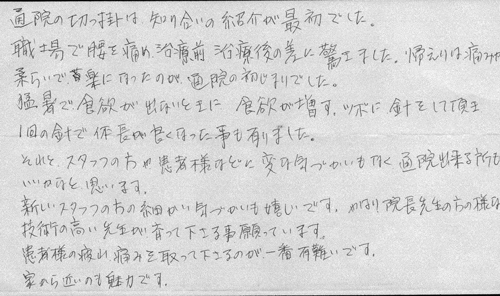 通院の切っ掛は、知り合いの紹介が最初でした。
職場で腰を痛め、治療前 治療後の差に驚きました。帰えりは痛みが
柔らいで楽になったのが、通院の初じまりでした。
猛暑で食欲が出ないときに 食欲が増す、ツボに針をして頂き
1回の針で体長が良くなった事も有りました。
それと、スタッフの方や患者様などに変な気づかいもなく 通院出来る所も
いいかなと、思います。
新しいスタッフの方の細かい気づかいも嬉しいです。かなり院長先生の方の様な
技術の高い先生が育って下さる事願っています。
患者様の疲れ、痛みを取って下さるのが、一番有難いです。
家から近いのも魅力です。